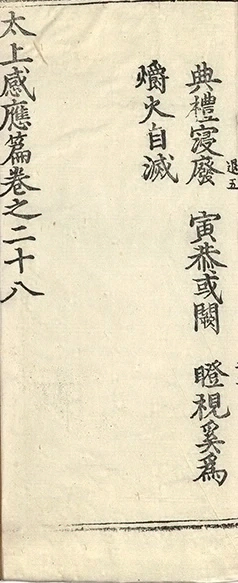 退五
典禮寖廢 寅恭或闕 瞪視奚為
爝火自滅
太上感應篇卷之二十八